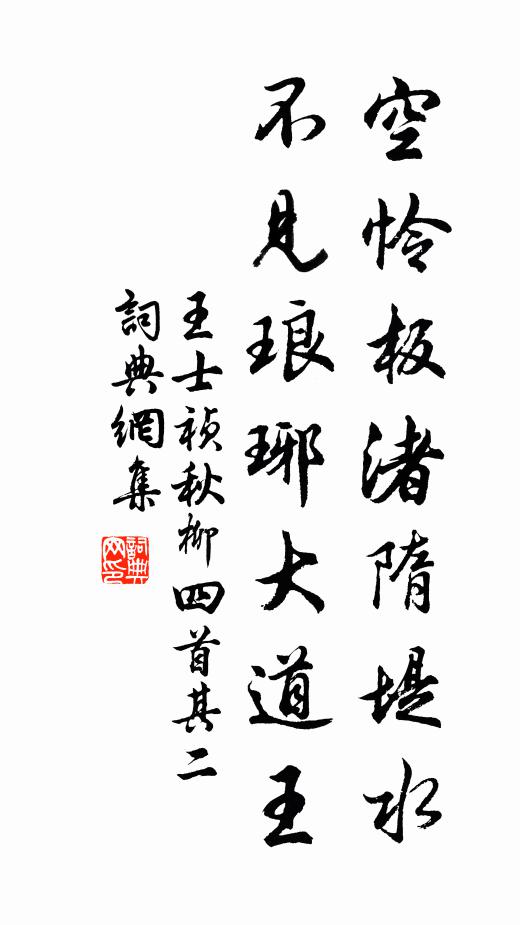 空怜板渚隋堤水
不見琅琊大道王
王士禎秋柳四首其二
詞典網集
詞典
网印